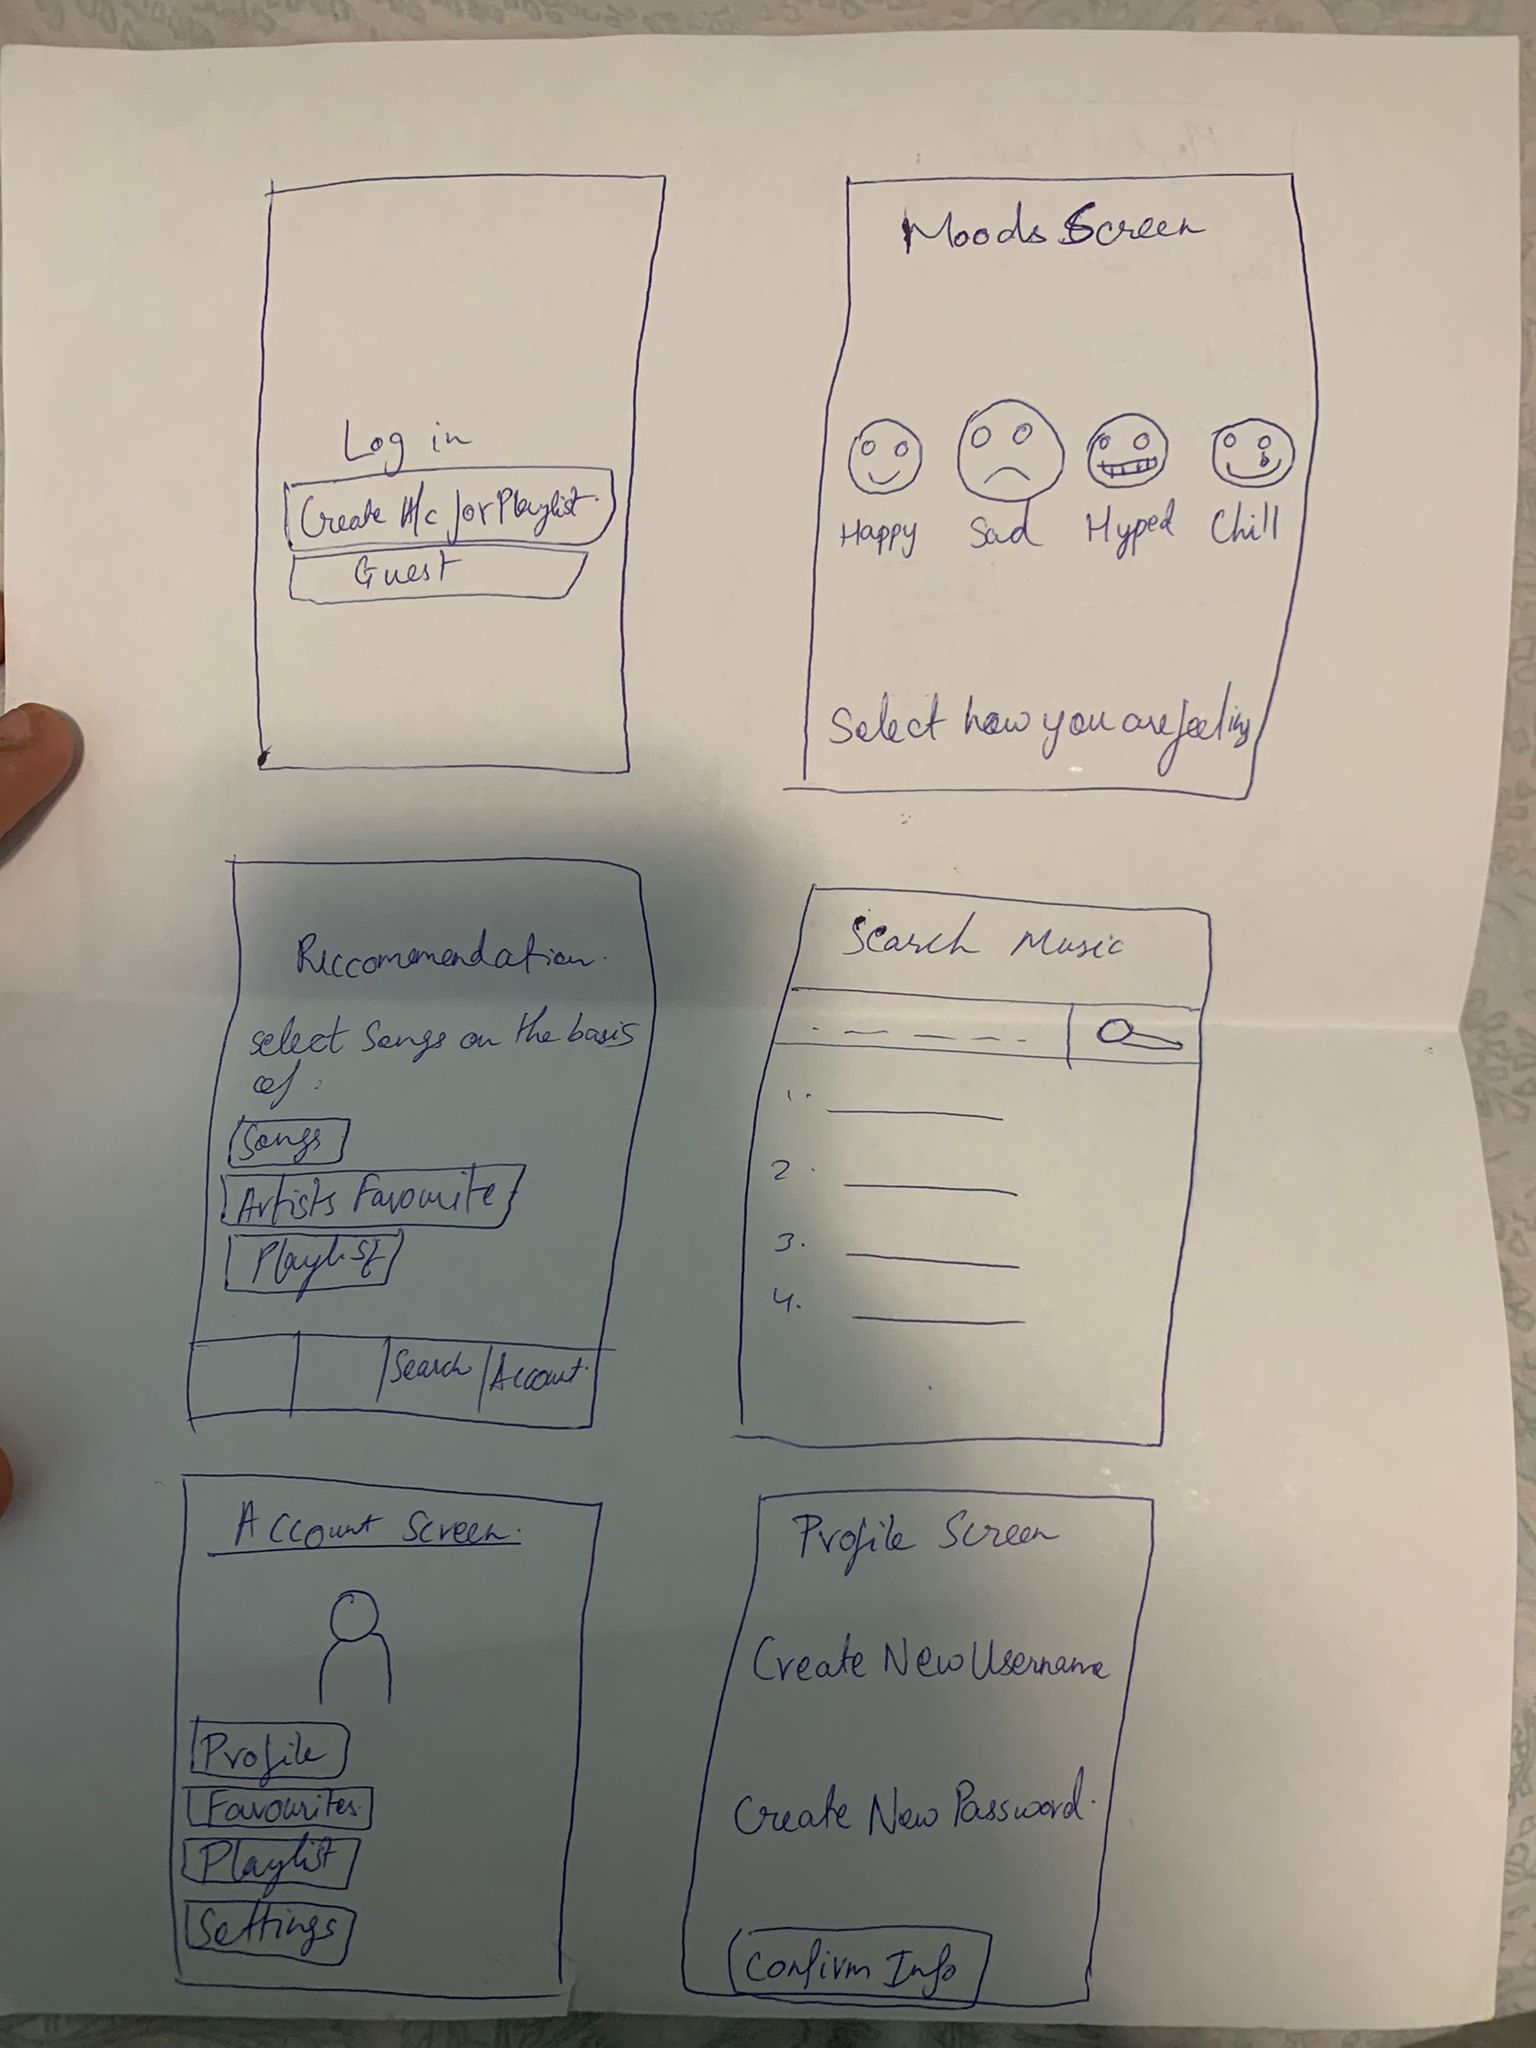 Log in
Create A/c for Playlist.
Guest
Moods Screen
Happy Sad Hyped Chill
Select how you are feeling
Reccomemendation.
select Songs on the basis
of :
Songs
Artists Favourite
Playlist
Search Account.
Search Music
1.
2.
3.
4.
Account Screen.
Profile
Favourites.
Playlist
Settings
Profile Screen
Create New Username
Create New Password.
Confirm Info